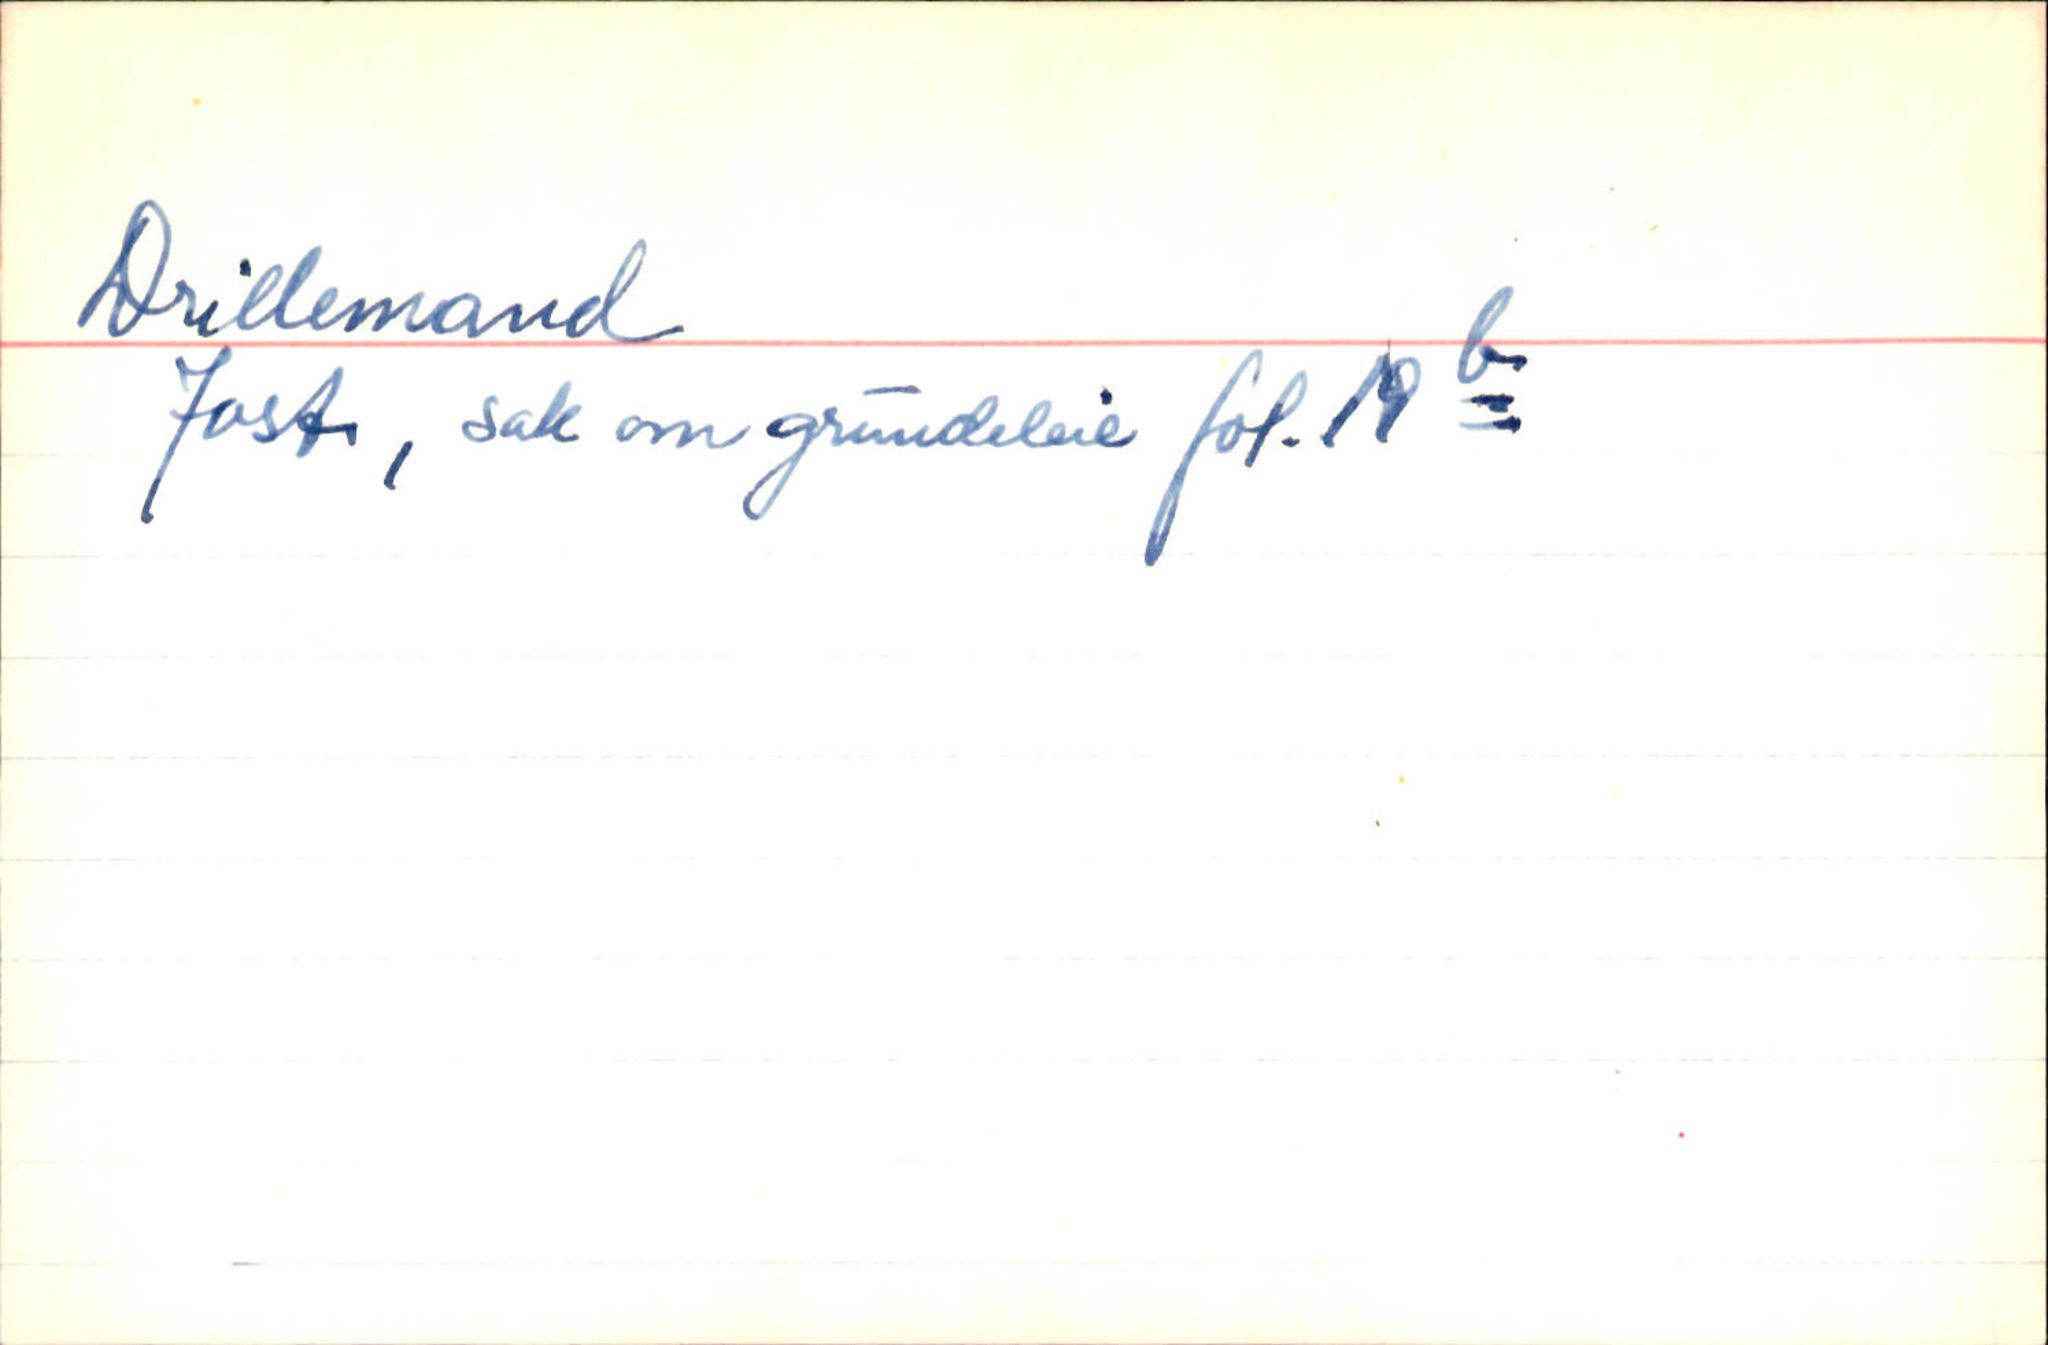 Drillemand
Jost, sak om grundeleie fol. 19 b